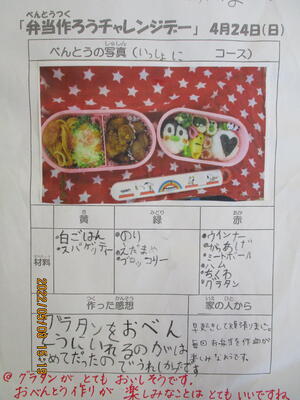 べんとうつく
「弁当作ろうチャレンジデー」 4月24日(日)
べんとうの写真(いっしょに コース)
黄 緑 赤
材料
・白ごはん
・スパゲッティ
・のり
・えだまめ
・ブロッコリー
・ウインナー
・からあげ
・ミートボール
・ハム
・ちくわ
・グラタン
作った感想
グラタンをおべん
とうにいれるのがは
じめてだったの
でうれしかったです
家の人から
早起きして頑張りました。
毎回お弁当を作るのが
楽しみなんです。
@グラタンが とても おいしそうです。
おべんとう作りが 楽しみなことは とてもいいですね。